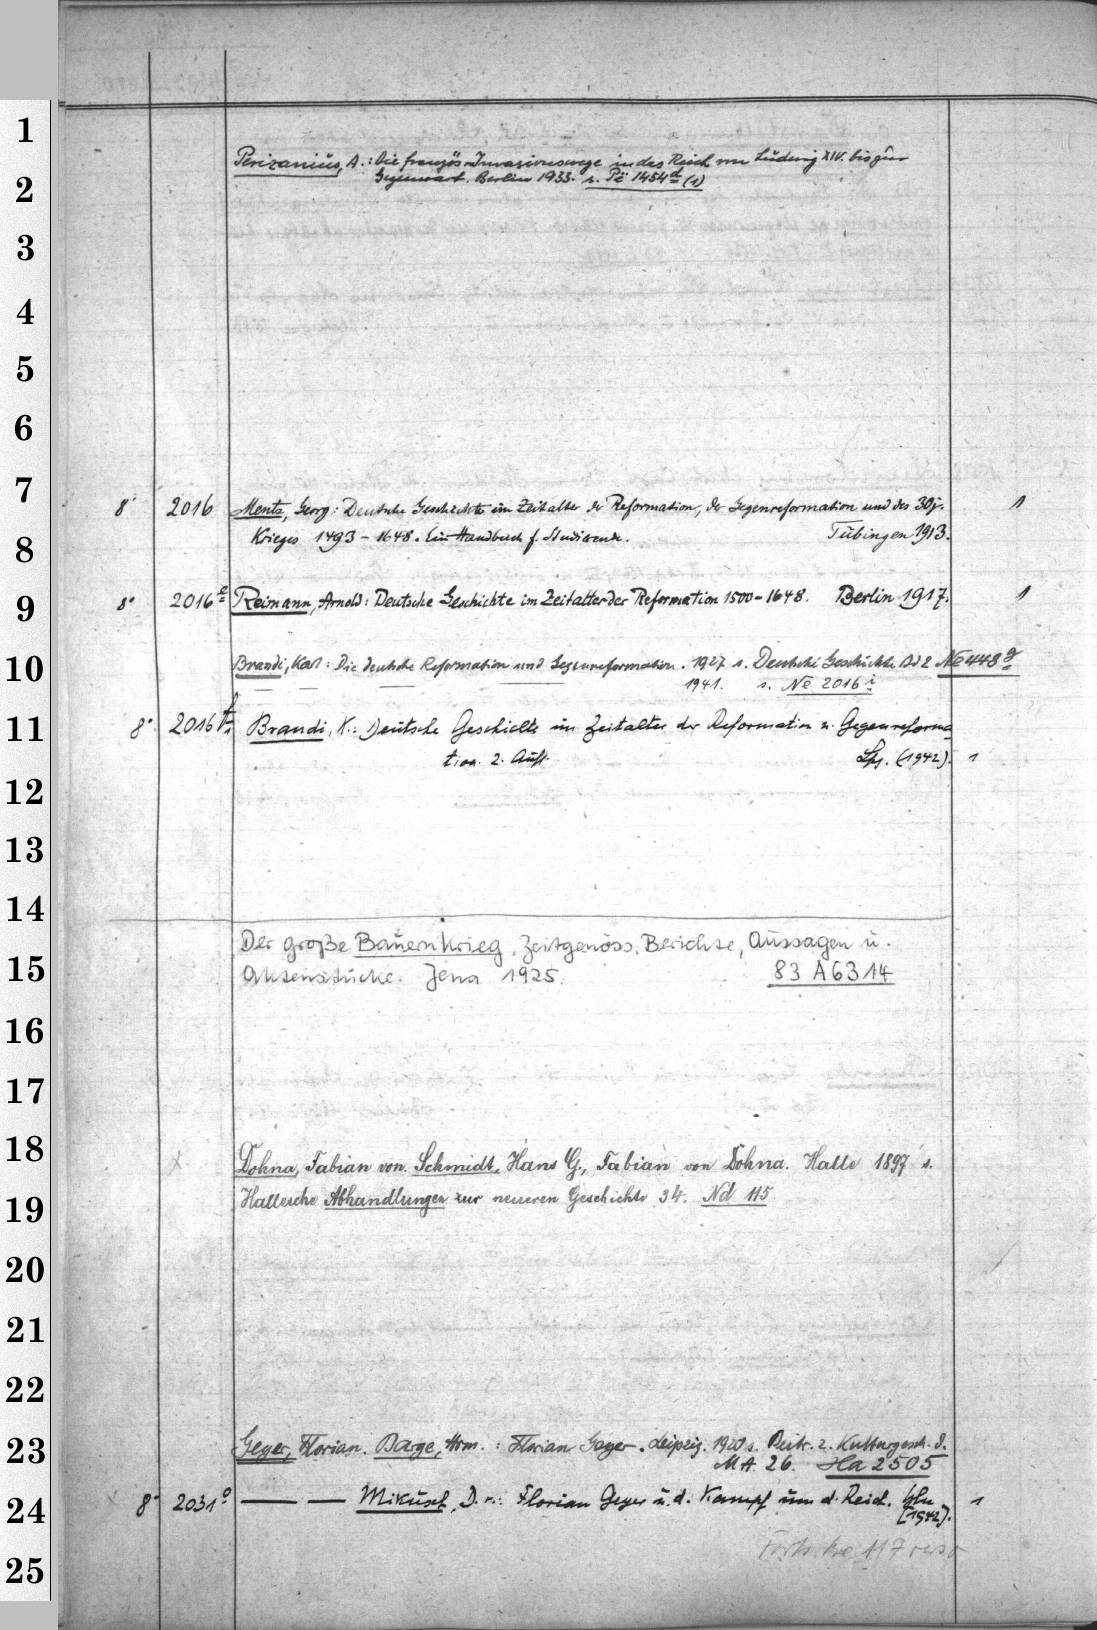 1
2
3
4
5
6
7
8
9
10
11
12
13
14
15
16
17
18
19
20
21
22
23
24
25
Perizanius, A.: Die französ. Invasionswege in das Reich von Ludwig XIV. bis zur
Gegenwart. Berlin 1933. s. Pc 1454d (1)
8° 2016 Mentz, Georg: Deutsche Geschichte im Zeitalter der Reformation, der Gegenreformation und des 30j. 1
Krieges 1493-1648. Ein Handbuch f. Studierende. Tübingen 1913.
8° 2016e Reimann, Arnold: Deutsche Geschichte im Zeitalter der Reformation 1500-1648. Berlin 1917. 1
Brandi, Karl: Die deutsche Reformation und Gegenreformation. 1927 s. Deutsche Geschichte Bd 2 Ne 448g
1941. s. Ne 2016i
8° 2016 Brandi, K.: Deutsche Geschichte im Zeitalter der Reformation u. Gegenreforma
tion. 2. Aufl. Lpz. (1942). 1
Der große Bauernkrieg. Zeitgenöss. Berichte, Aussagen u.
Aktenstücke. Jena 1925. 83 A 6314
Dohna, Fabian von. Schmidt, Hans G., Fabian von Dohna. Halle 1897 s.
Hallesche Abhandlungen zur neueren Geschichte 34. Nd 115
Geyer, Florian. Barge, Hrm.: Florian Geyer. Leipzig. 1920 s. Beitr. z. Kulturgesch. d.
MA. 26. Ha 2505
8° 2031o — — Mikusch, D. v.: Florian Geyer u. d. Kampf um d. Reich. Bln 1
[1942].
117 verso